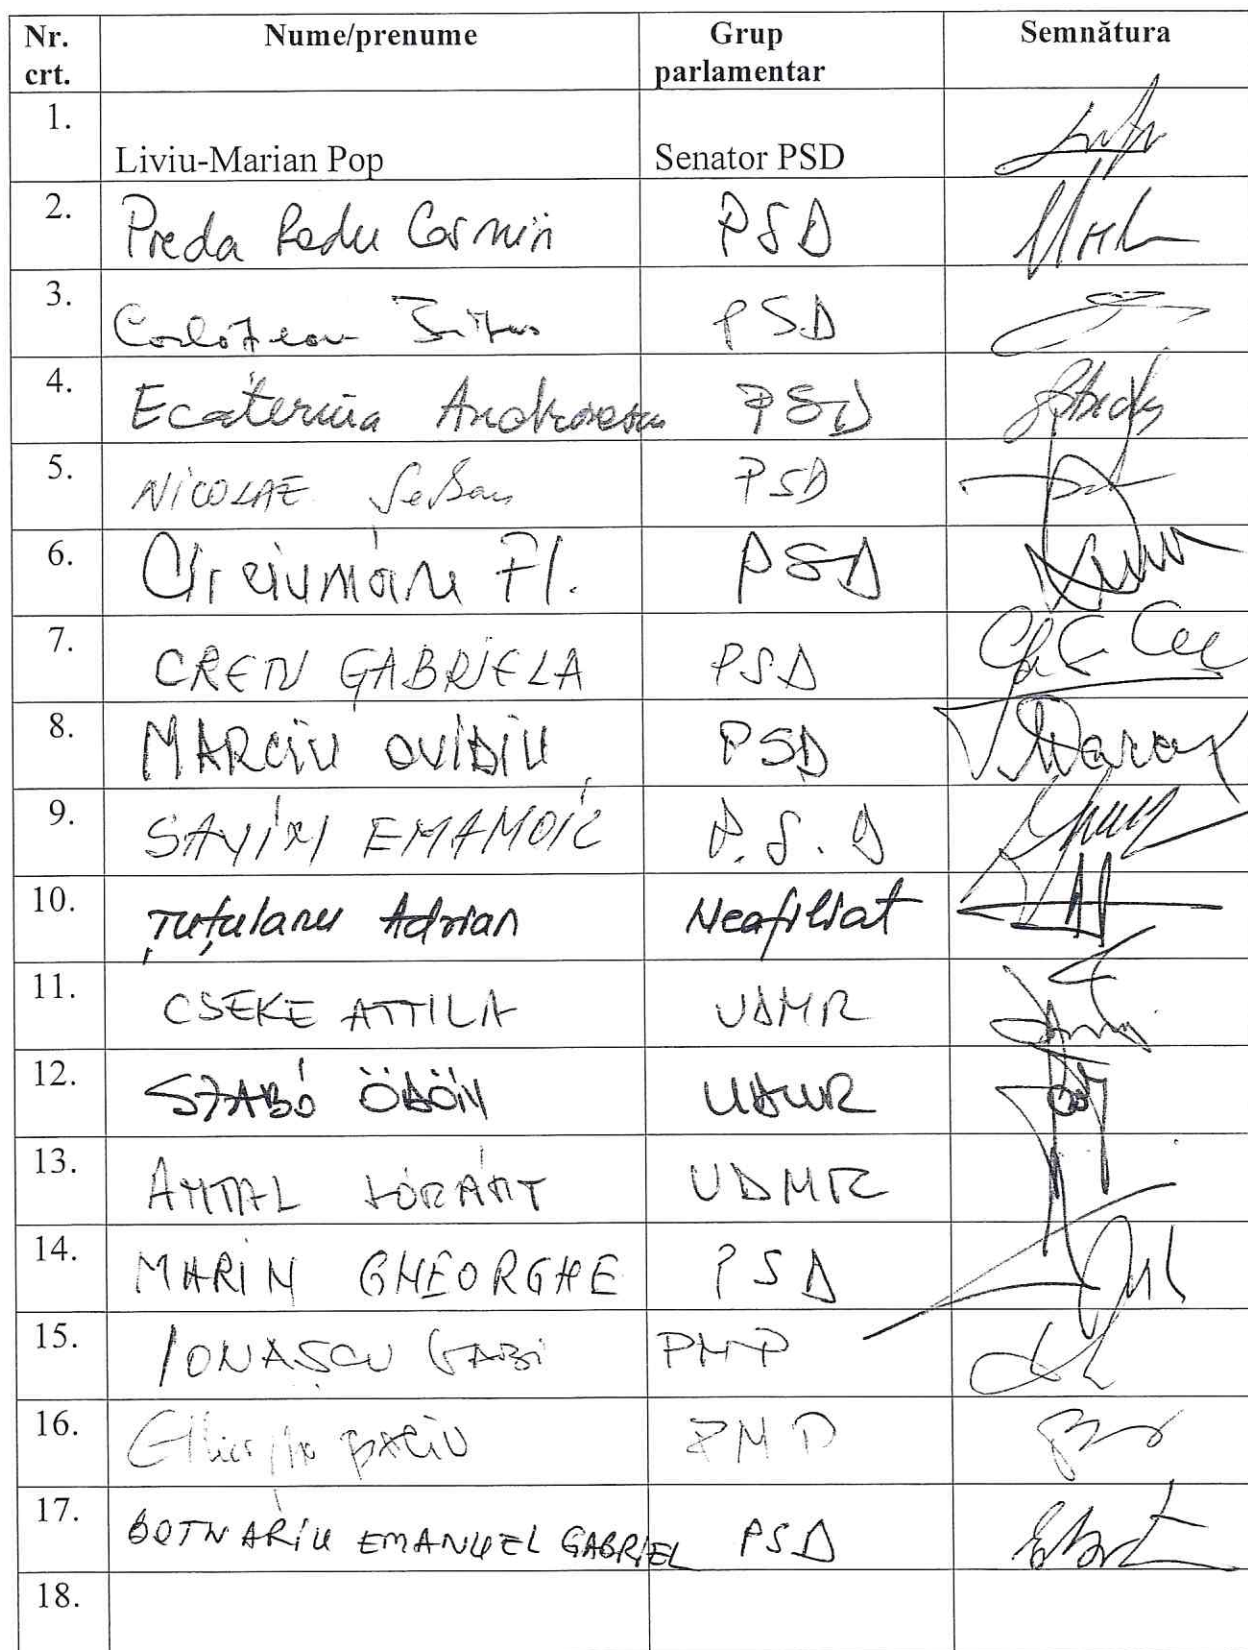 Nr. crt. Nume/prenume Grup parlamentar Semnătura
1. Liviu-Marian Pop Senator PSD
2. Preda Radu Cosmin PSD
3. Corlățean Titus PSD
4. Ecaterina Andronescu PSD
5. NICOLAE Șerban PSD
6. Cîrciumaru Fl. PSD
7. CREȚU GABRIELA PSD
8. MARCIU OVIDIU PSD
9. P.S.D
10. Țuțuianu Adrian Neafiliat
11. CSEKE ATTILA UDMR
12. SZABÓ ÖDÖN UDMR
13. ANTAL LÓRÁNT UDMR
14. MARIN GHEORGHE PSD
15. IONAȘCU GABI PMP
16. BACIU PMP
17. BOTNARIU EMANUEL GABRIEL PSD
18.